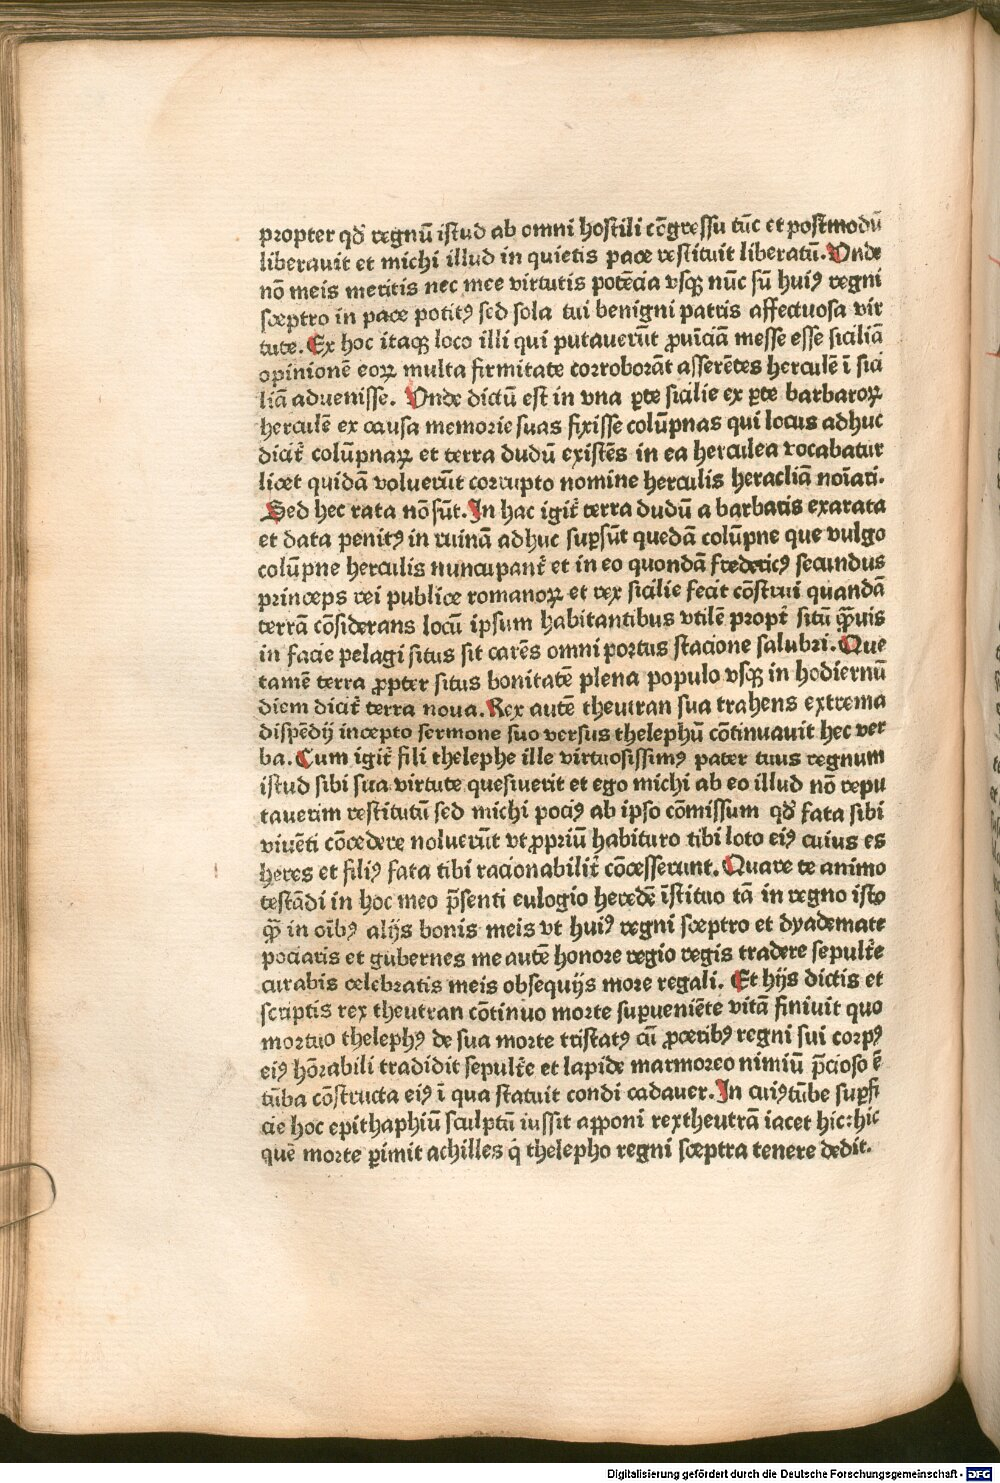 propter qď regnū istud ab omni hostili cōgressu tūc et postmodū
liberauit et michi illud in quietis pace restituit liberatū. Vnde
nō meis meritis nec mee virtutis potēcia vsqꝫ nūc sū huiꝰ regni
sceptro in pace potitꝰ sed sola tui benigni patris affectuosa vir
tute. Ex hoc itaqꝫ loco illi qui putauerūt ꝓuīciā messe esse siciliā
opinionē eoꝝ multa firmitate corroborāt asserētes herculē ī sici
liā aduenisse. Vnde dictū est in vna ꝑte sicilie ex ꝑte barbaroꝝ
herculē ex causa memorie suas fixisse colūpnas qui locus adhuc
dicit̄ colūpnaꝝ et terra dudū existēs in ea herculea vocabatur
licet quidā voluerūt corrupto nomine herculis heracliā noīari.
Sed hec rata nō sūt. In hac igit̄ terra dudū a barbatis exarata
et data penitꝰ in ruinā adhuc suꝑsūt quedā colūpne que vulgo
colūpne herculis nuncupant̄ et in eo quondā fredericꝰ secundus
princeps rei publice romanoꝝ et rex sicilie fecit cōstrui quandā
terrā cōsiderans locū ipsum habitantibus vtilē propt̄ sitū qͣ̄uis
in facie pelagi situs sit carēs omni portus stacione salubri. Que
tamē terra ꝓpter situs bonitatē plena populo vsqꝫ in hodiernū
diem dicit̄ terra noua. Rex autē theutran sua trahens extrema
dispēdij incepto sermone suo versus thelephū cōtinuauit hec ver
ba. Cum igit̄ fili thelephe ille virtuosissimꝰ pater tuus regnum
istud sibi sua virtute quesiuerit et ego michi ab eo illud nō repu
tauerim restitutū sed michi pociꝰ ab ipso cōmissum qď fata sibi
viuēti cōcedere noluerūt vt ꝓpriū habituro tibi loto eiꝰ cuius es
heres et filiꝰ fata tibi racionabilit̄ cōcesserunt. Quare te animo
testādi in hoc meo p̄senti eulogio heredē īstituo tā in regno isto
qͣ̄ in oībꝰ alijs bonis meis vt huiꝰ regni sceptro et dyademate
pociaris et gubernes me autē honore regio regis tradere sepult̄e
curabis celebratis meis obsequijs more regali. Et hijs dictis et
scriptis rex theutran cōtinuo morte suꝑueniēte vitā finiuit quo
mortuo thelephꝰ de sua morte tristatꝰ cū ꝓceribꝰ regni sui corpꝰ
eiꝰ hōrabili tradidit sepult̄e et lapide marmoreo nimiū p̄cioso ē
tūba cōstructa eiꝰ ī qua statuit condi cadauer. In cuiꝰ tūbe suꝑfi
cie hoc epithaphiū sculptū iussit apponi rex theutrā iacet hic: hic
quē morte ꝑimit achilles q̇ thelepho regni sceptra tenere dedit.
Digitalisierung gefördert durch die Deutsche Forschungsgemeinschaft - DFG